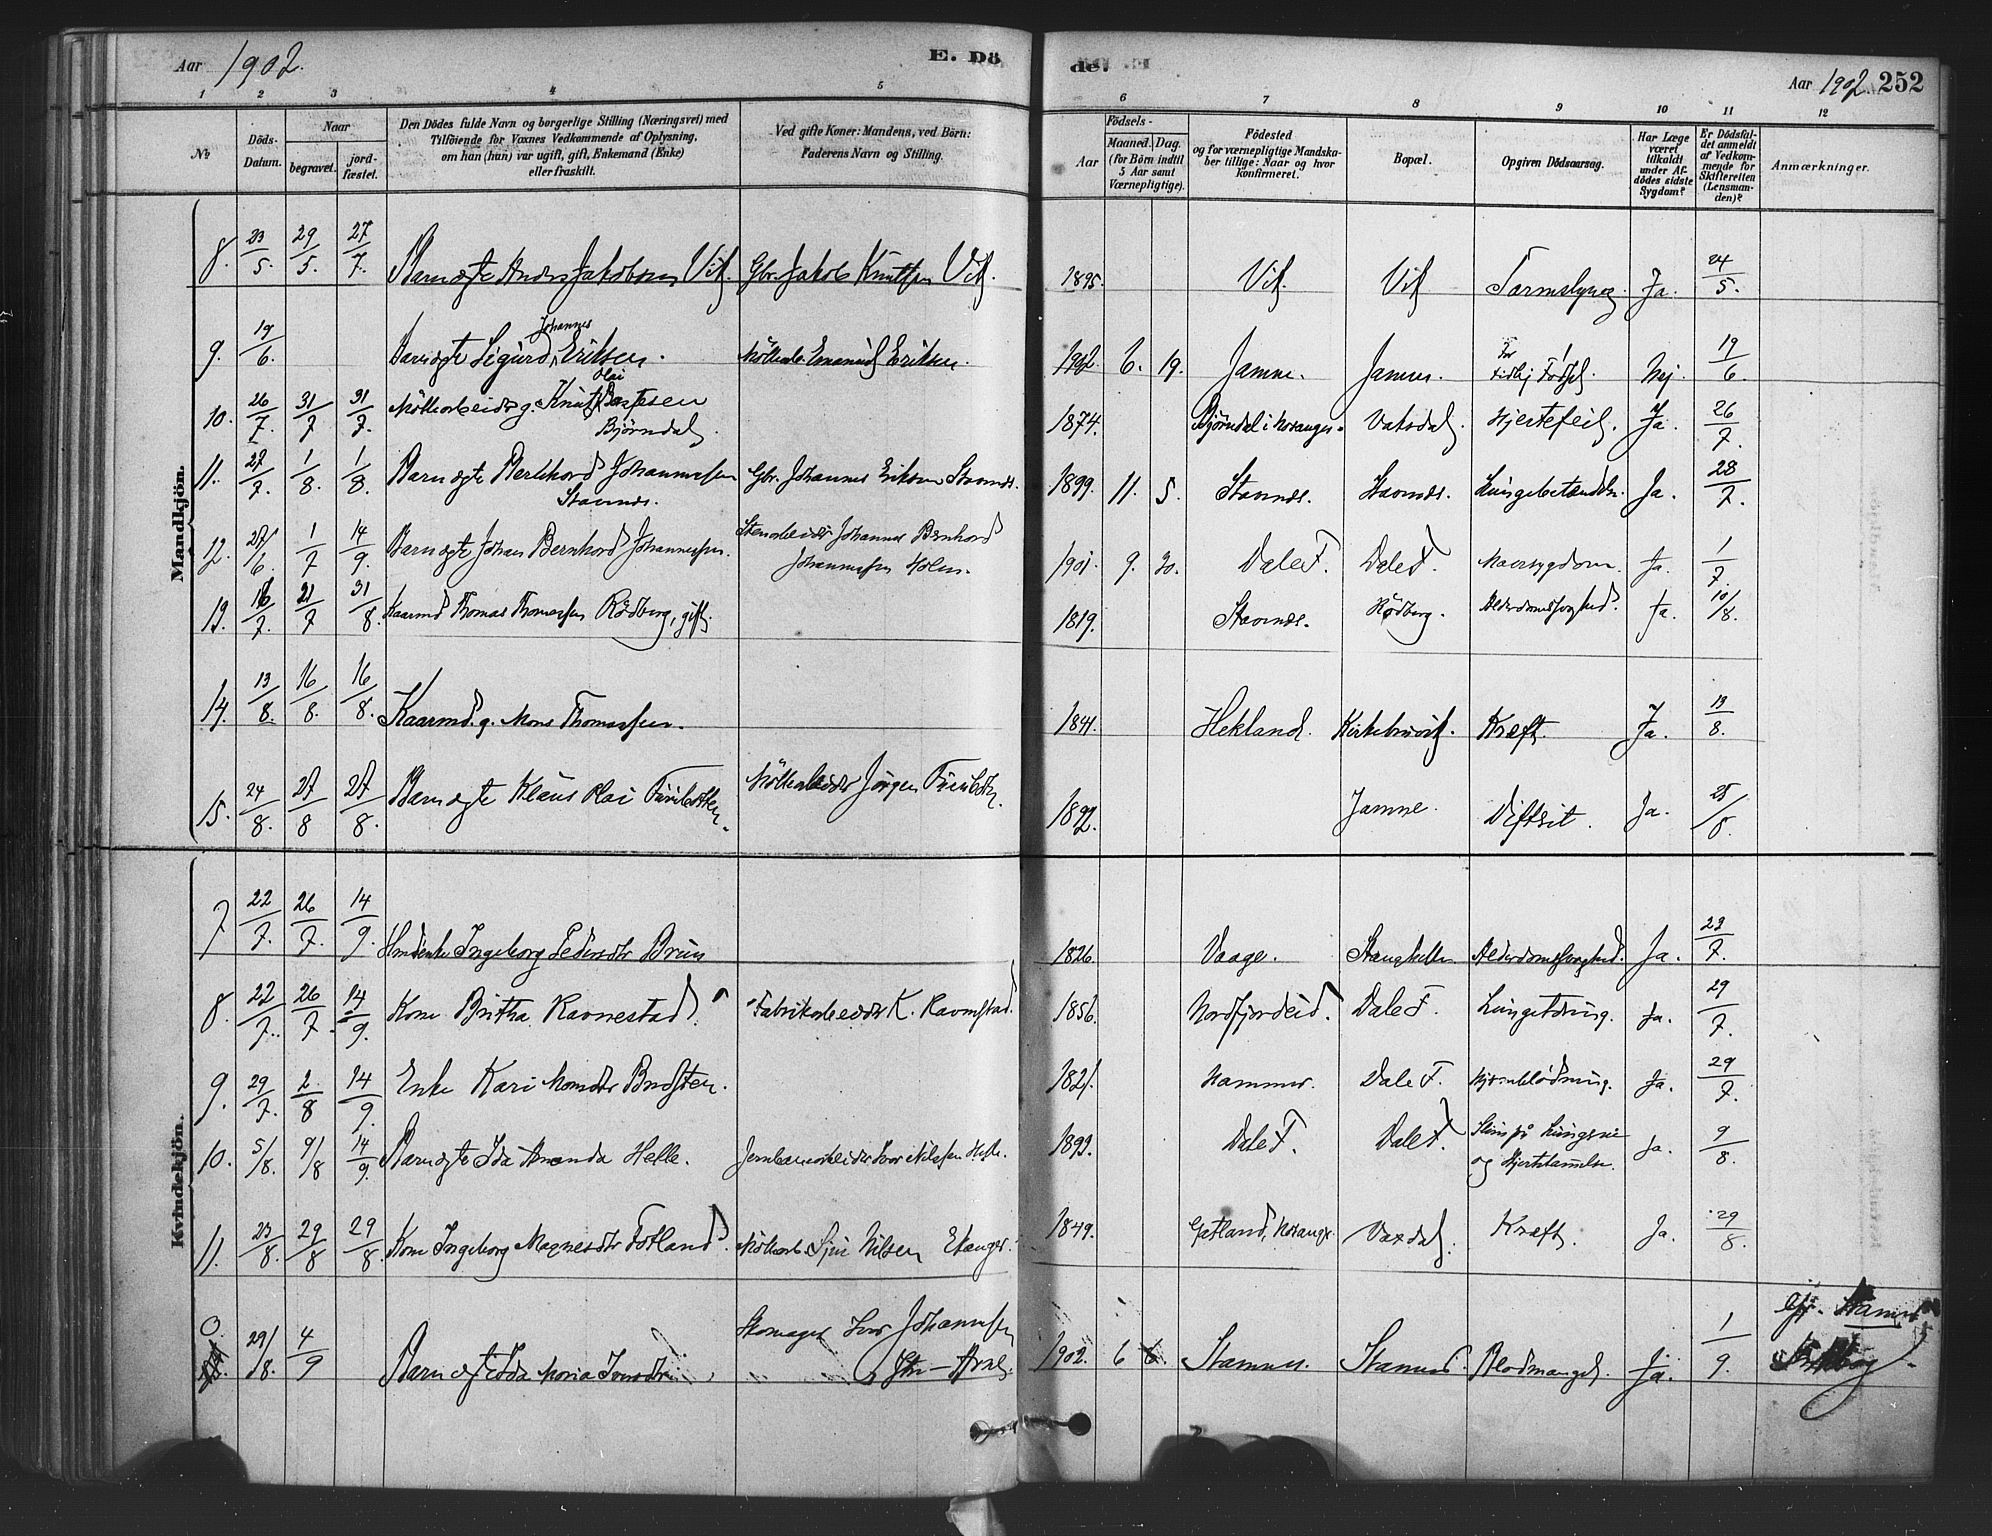 Aar 1902. E. Dö
de. Aar 1902. 252
1 2 3 4 5 6 7 8 9 10 11 12
№
Döds-Datum.
Naar
begravet.
jord-fæstet.
Den Dödes fulde Navn og borgerlige Stilling (Næringsvei) med
Tilföiende for Voxnes Vedkommende af Oplysning,
om han (hun) var ugift, gift, Enkemand (Enke)
eller fraskilt.
Ved gifte Koner: Mandens, ved Börn:
Faderens Navn og Stilling.
Födsels-
Aar
Maaned. Dag.
(for Börn indtil
5 Aar samt
Værnepligtige).
Födested
og for værnepligtige Mandska-
ber tillige: Naar og hvor
Konfirmeret.
Bopæl.
Opgiven Dödsaarsag.
Har Læge
været
tilkaldt
under Af-
dödes sidste
Sygdom?
Er Dödsfal-
det anmeldt
af Vedkom-
mende for
Skifteretten
(Lensman-
den)?
Anmærkninger.
Mandkjön.
8. 23/5. 29/5. 27/7. Barn ægte Anders Jakobsen Gbr. Jakob Knutsen 1895. Ja. 24/5.
9. 19/6 Barn ægte Sigurd Johannes Eriksen. Emanuel Eriksen. 1902 6. 19. Jamne. Jamne. For tidlig Fødsel. Nej. 19/6.
10. 26/7. 31/7 31/7. Möllearbeider g. Knut Olai
Bjørndal. 1874. Bjørndal i Hosanger. Vaksdal. Hjertefeil. Ja. 26/7.
11. 27/7. 1/8. 1/8. Barn ægte Johannessen
Stavnes. Gbr. Johannes Eriksen Stavnes. 1899. 11. 5. Stavnes. Stavnes. Lungebetændelse. Ja. 28/7.
12. 27/6 1/7 14/9. Barn ægte Johan Bernhard Johannessen. Stenarbeider Johannes Bernhard
Johannessen Holm. 1901. 9. 30. Dale F. Dale F. Mavesygdom. Ja. 1/7.
13. 16/7. 21/7 31/8. Kaarmd Thomas Thomassen Rödberg, gift. 1819. Stavnes. Rödberg. Alderdomssvaghed. Ja. 10/8.
14. 13/8. 16/8. 16/8. Kaarmd. g. Mons Thomassen. 1841. Hekland. Kræft. Ja. 13/8.
15. 24/8. 27/8 27/8. Barn ægte Klaus Olai Möllearbeider Jörgen 1892. Jamne. Difterit. Ja. 25/8.
Kvindekjön.
7 22/7. 26/7. 14/9. Ingeborg Pedersdtr Brun 1826. Vaage. Stanghelle. Alderdomssvaghed. Ja. 23/7.
8. 22/7. 26/7. 14/9. Kone Britha Ravnestad. Fabrikarbeider K. Ravnestad. 1856. Nordfjordeid. Dale F. Lungetæring. Ja. 29/7.
9. 29/7. 2/8 14/9. Enke Kari Monsdtr 1821. Hammer. Dale F. Hjerneblödning. Ja. 29/7.
10. 5/8. 9/8 14/9. Barn ægte Ida Amanda Helle. Jernbanearbeider Ivar Nilssen Helle. Dale F. Dale F. Slim på Lungerne
og Hjertelammelse. Ja. 9/8.
11. 23/8. 29/8 29/8. Kone Ingeborg Magnesdtr Fotland. Möllearb. Nilsen Ekanger. 1849. Hosanger. Vaxdal. Kræft. Ja. 29/8.
0 29/8. 4/9 Barn Ida Maria Skomager Iver Johannessen
1902. 6 Stamnes. Stamnes. Blodmangel. Ja. 1/9.